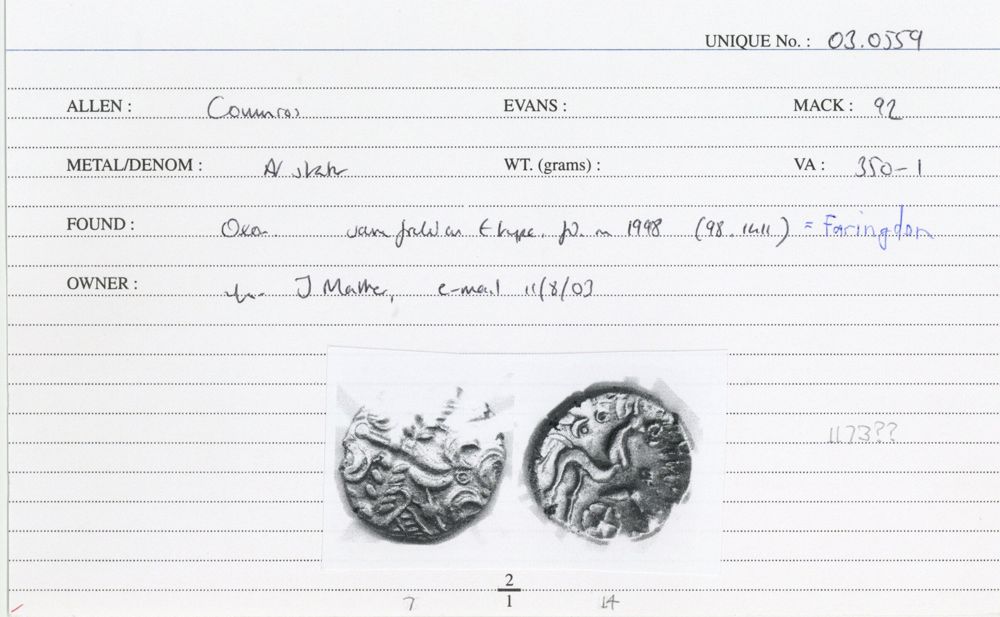 UNIQUE No. : 03.0559
ALLEN : Commios EVANS : MACK : 92
METAL/DENOM : WT. (grams) : VA : 350-1
FOUND : Oxon in 1998 (98.1411) = Faringdon
OWNER : J Mather, e-mail 11/8/03
1173??
2
7 1 14